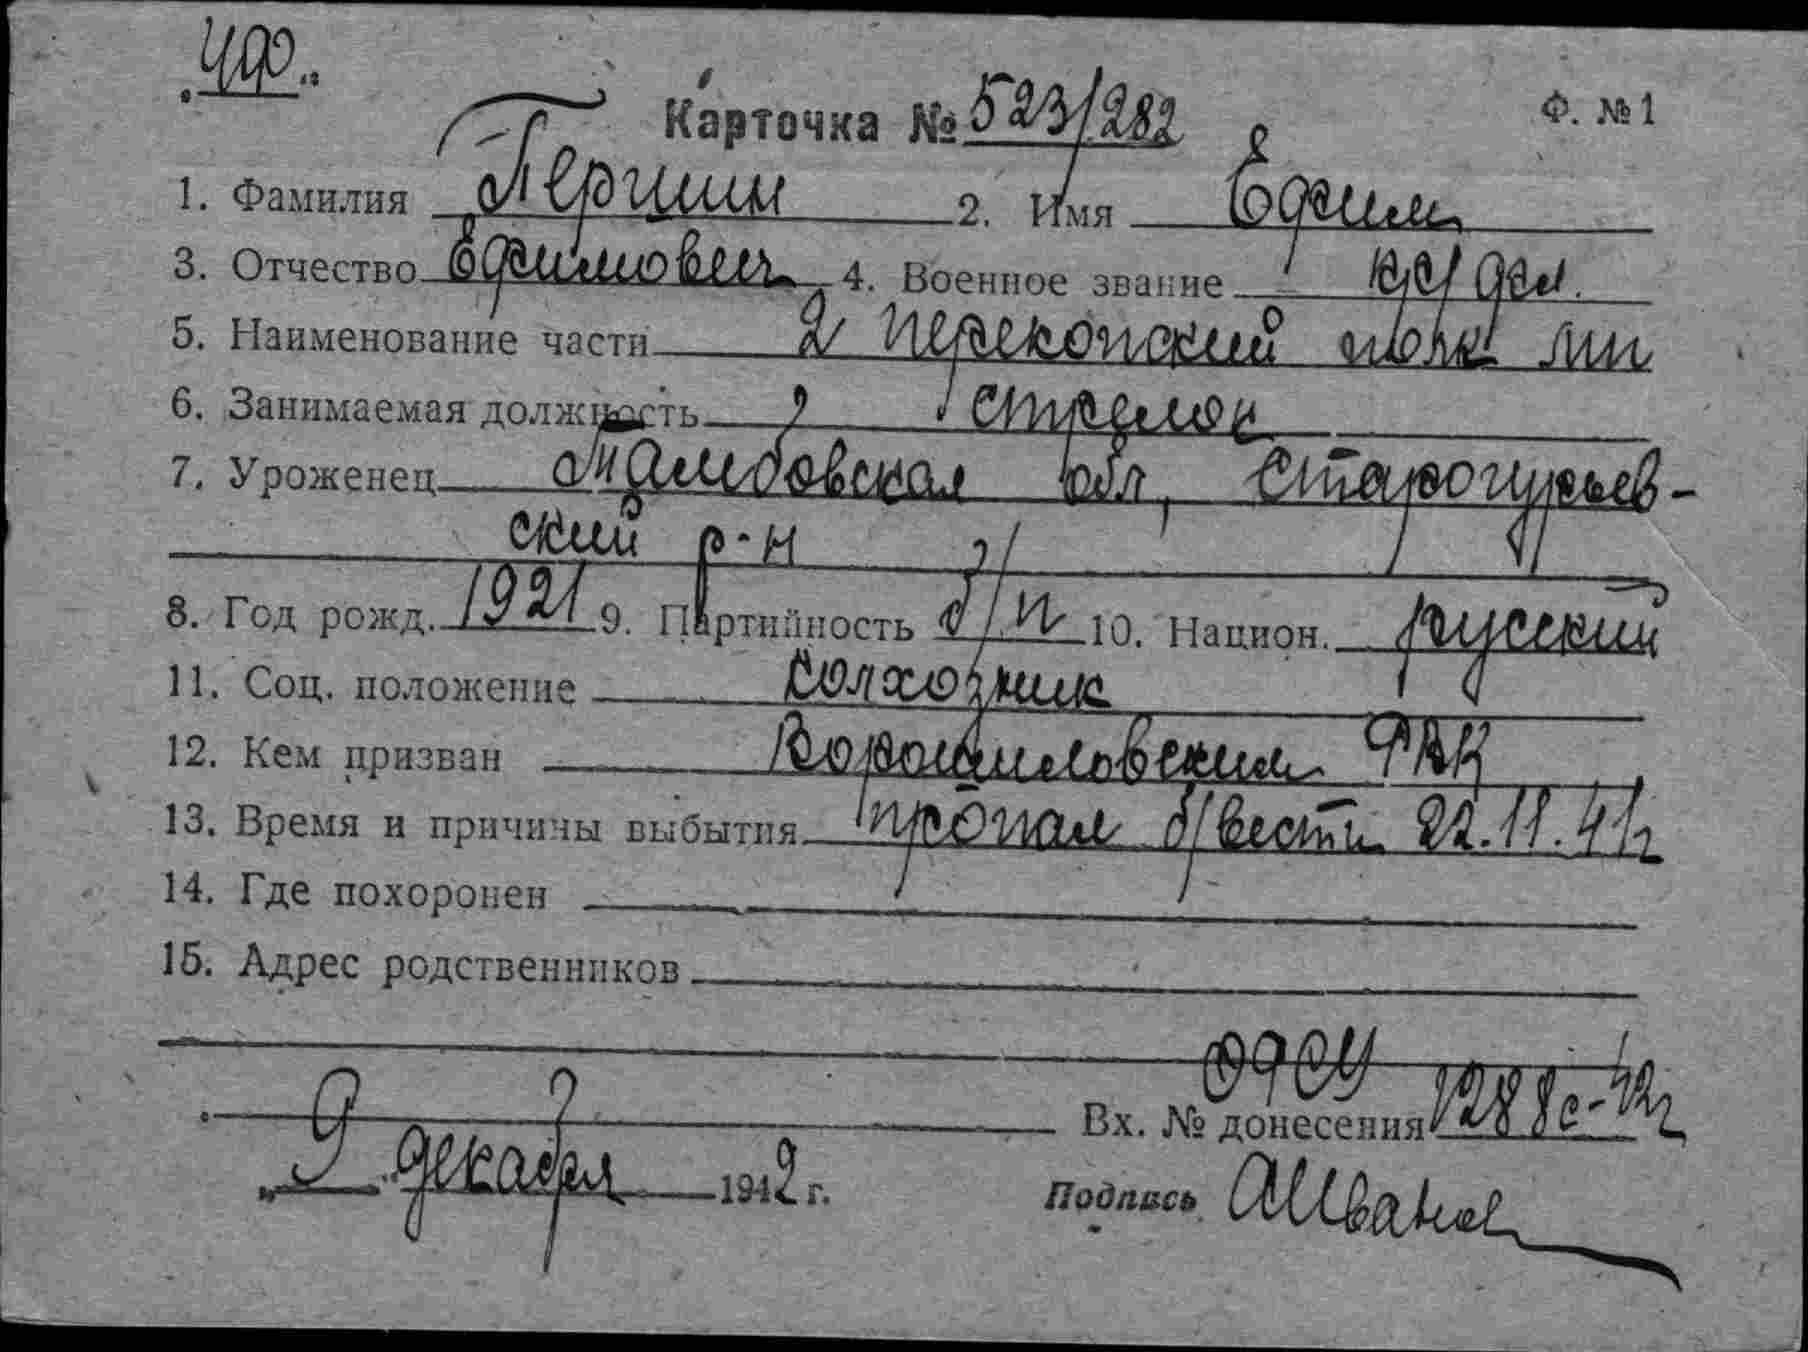 ЧФ
Карточка № 523/282 Ф. № 1
1. Фамилия Першин 2. Имя Ефим
3. Отчество Ефимович 4. Военное звание кр/фл.
5. Наименование части 2 Перекопский полк МП
6. Занимаемая должность стрелок
7. Уроженец Тамбовская обл, Старогурьев-
ский р-н
8. Год рожд. 1921 9. Партийность б/п 10. Национ. русский
11. Соц. положение колхозник
12. Кем призван Ворошиловским РВК
13. Время и причины выбытия пропал б/вести 22.11.41г
14. Где похоронен
15. Адрес родственников
Вх. № донесения 1288с-42г
„9" декабря 1942 г. Подпись АИванов